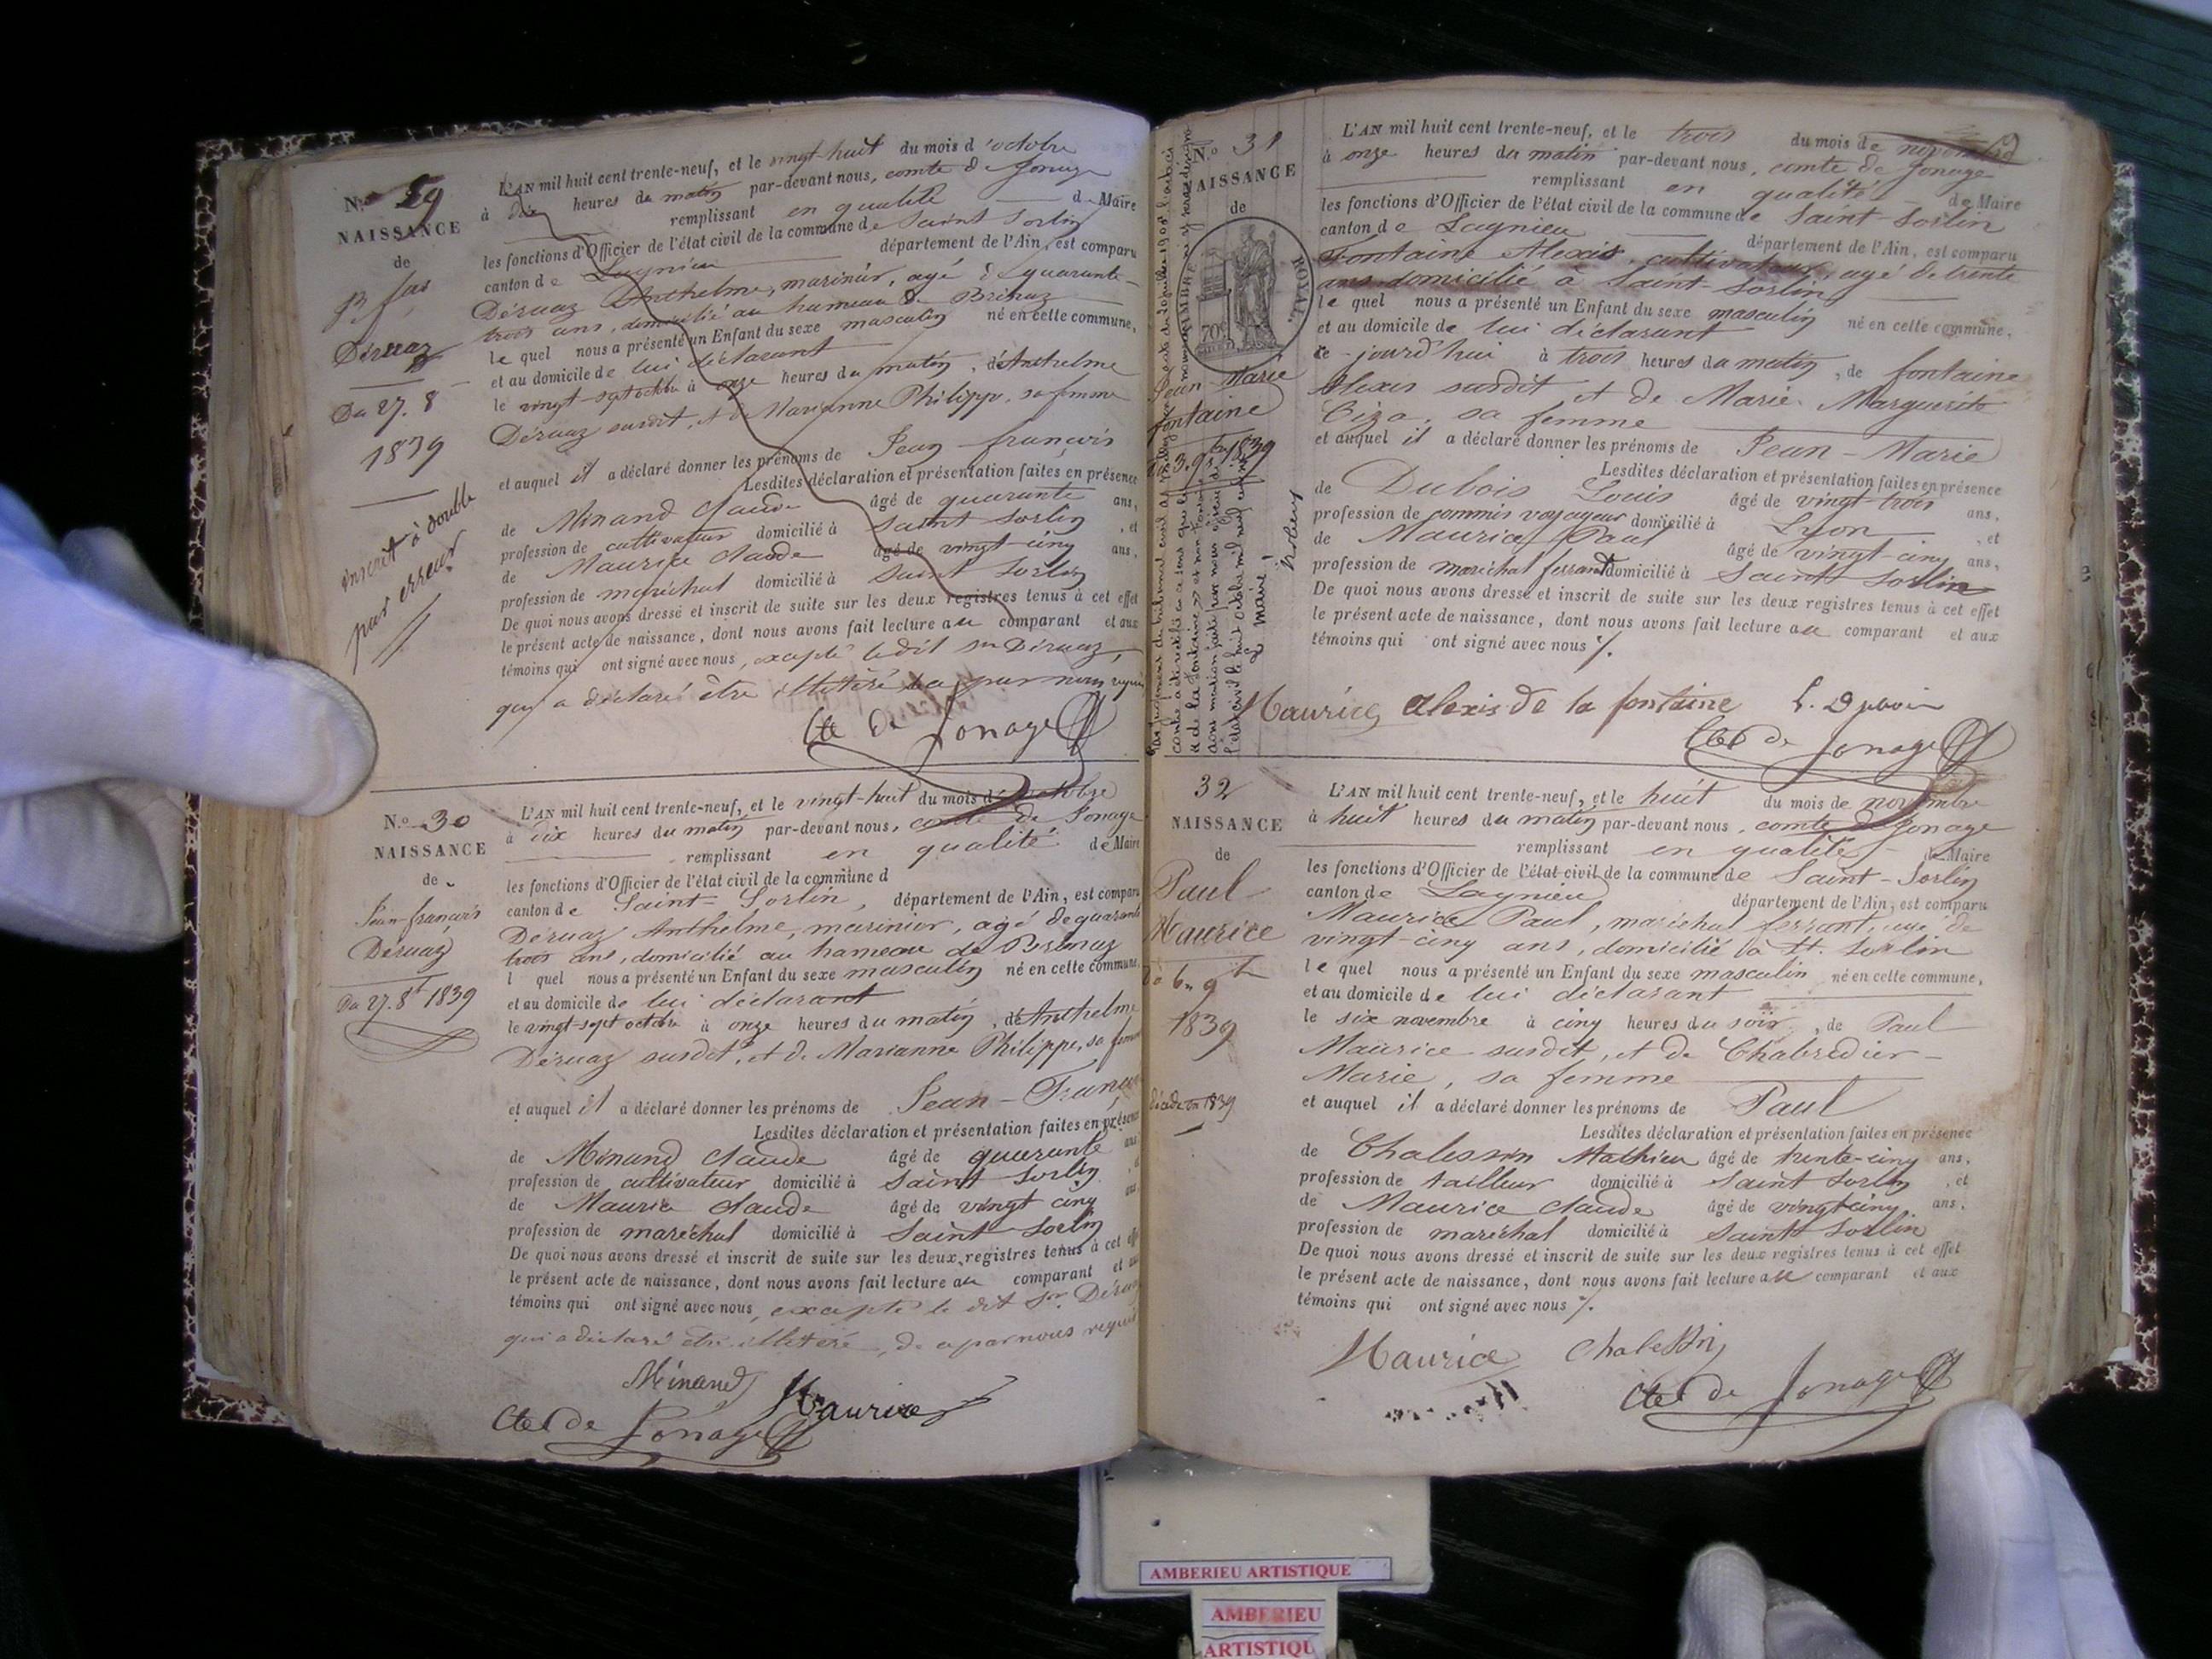 N.º 29
NAISSANCE
de
Déruaz
Du 27. 8
1839
inscrit à double
par erreur
L'AN mil huit cent trente-neuf, et le vingt-huit du mois d'octobre
à dix heures du matin par-devant nous, comte de Jonage
remplissant en qualité de Maire
les fonctions d'Officier de l'état civil de la commune de Saint Sorlin
canton de Lagnieu département de l'Ain, est comparu
Déruaz Anthelme, marinier, agé de quarante-
trois ans, domicilié au hameau de
le quel nous a présenté un Enfant du sexe masculin né en cette commune,
et au domicile de lui déclarant
le vingt-sept octobre à onze heures du matin, d'Anthelme
Déruaz susdit, et de Marianne Philippe, sa femme
et auquel il a déclaré donner les prénoms de Jean-françois
Lesdites déclaration et présentation faites en présence
de Minand Claude âgé de quarante ans,
profession de cultivateur domicilié à Saint Sorlin, et
de Maurice Claude âgé de vingt-cinq ans,
profession de maréchal domicilié à Saint Sorlin
De quoi nous avons dressé et inscrit de suite sur les deux registres tenus à cet effet
le présent acte de naissance, dont nous avons fait lecture au comparant et aux
témoins qui ont signé avec nous, excepté ledit sr Déruaz,
qui a déclaré être illettéré de par nous requis
Cte de Jonage
N.º 30
NAISSANCE
de
Jean-françois
Déruaz
Du 27. 8t 1839
L'AN mil huit cent trente-neuf, et le vingt-huit du mois d'octobre
à dix heures du matin par-devant nous, comte de Jonage
remplissant en qualité de Maire
les fonctions d'Officier de l'état civil de la commune d
canton de Saint-Sorlin, département de l'Ain, est comparu
Déruaz Anthelme, marinier, agé de quarante
trois ans, domicilié au hameau de
l quel nous a présenté un Enfant du sexe masculin né en cette commune.
et au domicile de lui déclarant
le vingt-sept octobre à onze heures du matin, d'Anthelme
Déruaz susdit, et de Marianne Philippe, sa femme
et auquel il a déclaré donner les prénoms de Jean-François
Lesdites déclaration et présentation faites en présence
de Minand Claude âgé de quarante ans
profession de cultivateur domicilié à Saint Sorlin
de Maurice Claude âgé de vingt cinq ans
profession de maréchal domicilié à Saint Sorlin
De quoi nous avons dressé et inscrit de suite sur les deux registres tenus à cet effet
le présent acte de naissance, dont nous avons fait lecture au comparant et aux
témoins qui ont signé avec nous, excepté le dit sr. Déruaz
qui a déclaré être illettéré, de par nous requis
Minand Maurice
Cte de Jonage
N.º 31
NAISSANCE
de
TIMBRE ROYAL.
70c
Jean Marie
fontaine
Du 3. 9bre 1839
le maire
L'AN mil huit cent trente-neuf, et le trois du mois de novembre
à onze heures du matin par-devant nous, comte de Jonage
remplissant en qualité de Maire
les fonctions d'Officier de l'état civil de la commune de Saint-Sorlin
canton de Lagnieu département de l'Ain, est comparu
Fontaine Alexis, cultivateur, agé de trente
ans domicilié à Saint-Sorlin
le quel nous a présenté un Enfant du sexe masculin né en cette commune.
et au domicile de lui déclarant
ce-jourd'hui à trois heures du matin, de fontaine
Alexis susdit et de Marie Marguerite
sa femme
et auquel il a déclaré donner les prénoms de Jean-Marie
Lesdites déclaration et présentation faites en présence
de Dubois Louis âgé de vingt-trois ans,
profession de commis voyageur domicilié à Lyon, et
de Maurice Paul âgé de vingt-cinq ans,
profession de maréchal ferrant domicilié à Saint Sorlin
De quoi nous avons dressé et inscrit de suite sur les deux registres tenus à cet effet
le présent acte de naissance, dont nous avons fait lecture au comparant et aux
témoins qui ont signé avec nous %.
Maurice alexis de la fontaine L. Dubois
Cte de Jonage
32
NAISSANCE
de
Paul
Maurice
Du 6 9bre
1839
décédé en 1839
L'AN mil huit cent trente-neuf, et le huit du mois de novembre
à huit heures du matin par-devant nous, comte de Jonage
remplissant en qualité de Maire
les fonctions d'Officier de l'état civil de la commune de Saint-Sorlin
canton de Lagnieu département de l'Ain, est comparu
Maurice Paul, maréchal ferrant, agé de
vingt-cinq ans, domicilié à St. Sorlin
le quel nous a présenté un Enfant du sexe masculin né en cette commune,
et au domicile de lui déclarant
le six novembre à cinq heures du soir, de Paul
Maurice susdit, et de Chabredier
Marie, sa femme
et auquel il a déclaré donner les prénoms de Paul
Lesdites déclaration et présentation faites en présence
de Chalessin Mathieu âgé de trente-cinq ans,
profession de tailleur domicilié à Saint Sorlin, et
de Maurice Claude âgé de vingt-cinq ans,
profession de maréchal domicilié à Saint Sorlin
De quoi nous avons dressé et inscrit de suite sur les deux registres tenus à cet effet
le présent acte de naissance, dont nous avons fait lecture au comparant et aux
témoins qui ont signé avec nous %.
Maurice Chalessin
Cte de Jonage
AMBERIEU ARTISTIQUE
AMBERIEU
ARTISTIQU